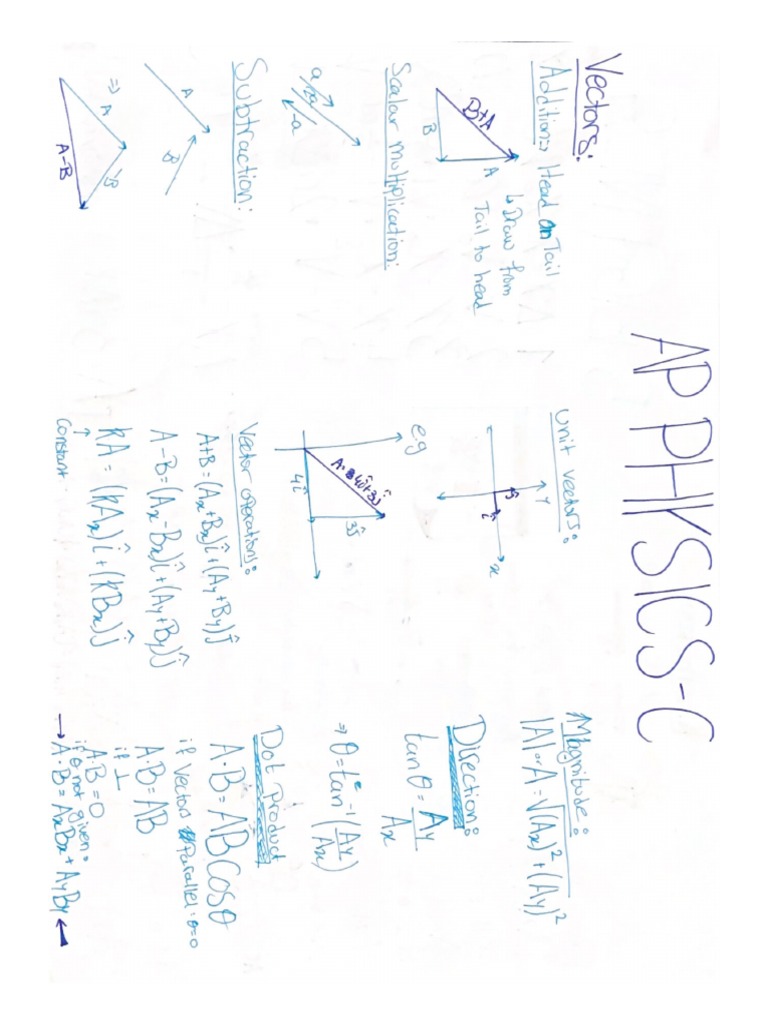 AP PHYSICS-C
Vectors:
Addition⇒ Head on Tail
↳ Draw from
Tail to head
B+A
A
B
Scalar multiplication:
a
2a
-a
Subtraction:
A
B
⇒
A
-B
A-B
Unit vectors:
y
ĵ
î
x
e.g
A=4î+3ĵ
3ĵ
4î
Vector operations:
A+B=(Ax+Bx)î+(Ay+By)ĵ
A-B=(Ax-Bx)î+(Ay+By)ĵ
KA = (KAx)î+(KBx)ĵ
↑
Constant
Magnitude:
|A| or A = √(Ax)²+(Ay)²
Direction:
tanθ = Ay/Ax
⇒ θ=tan⁻¹(Ay/Ax)
Dot Product
A·B = ABCosθ
if Vectors Parallel: θ=0
A·B=AB
if ⊥
A·B=0
if θ not given:
→ A·B = AxBx + AyBy ←